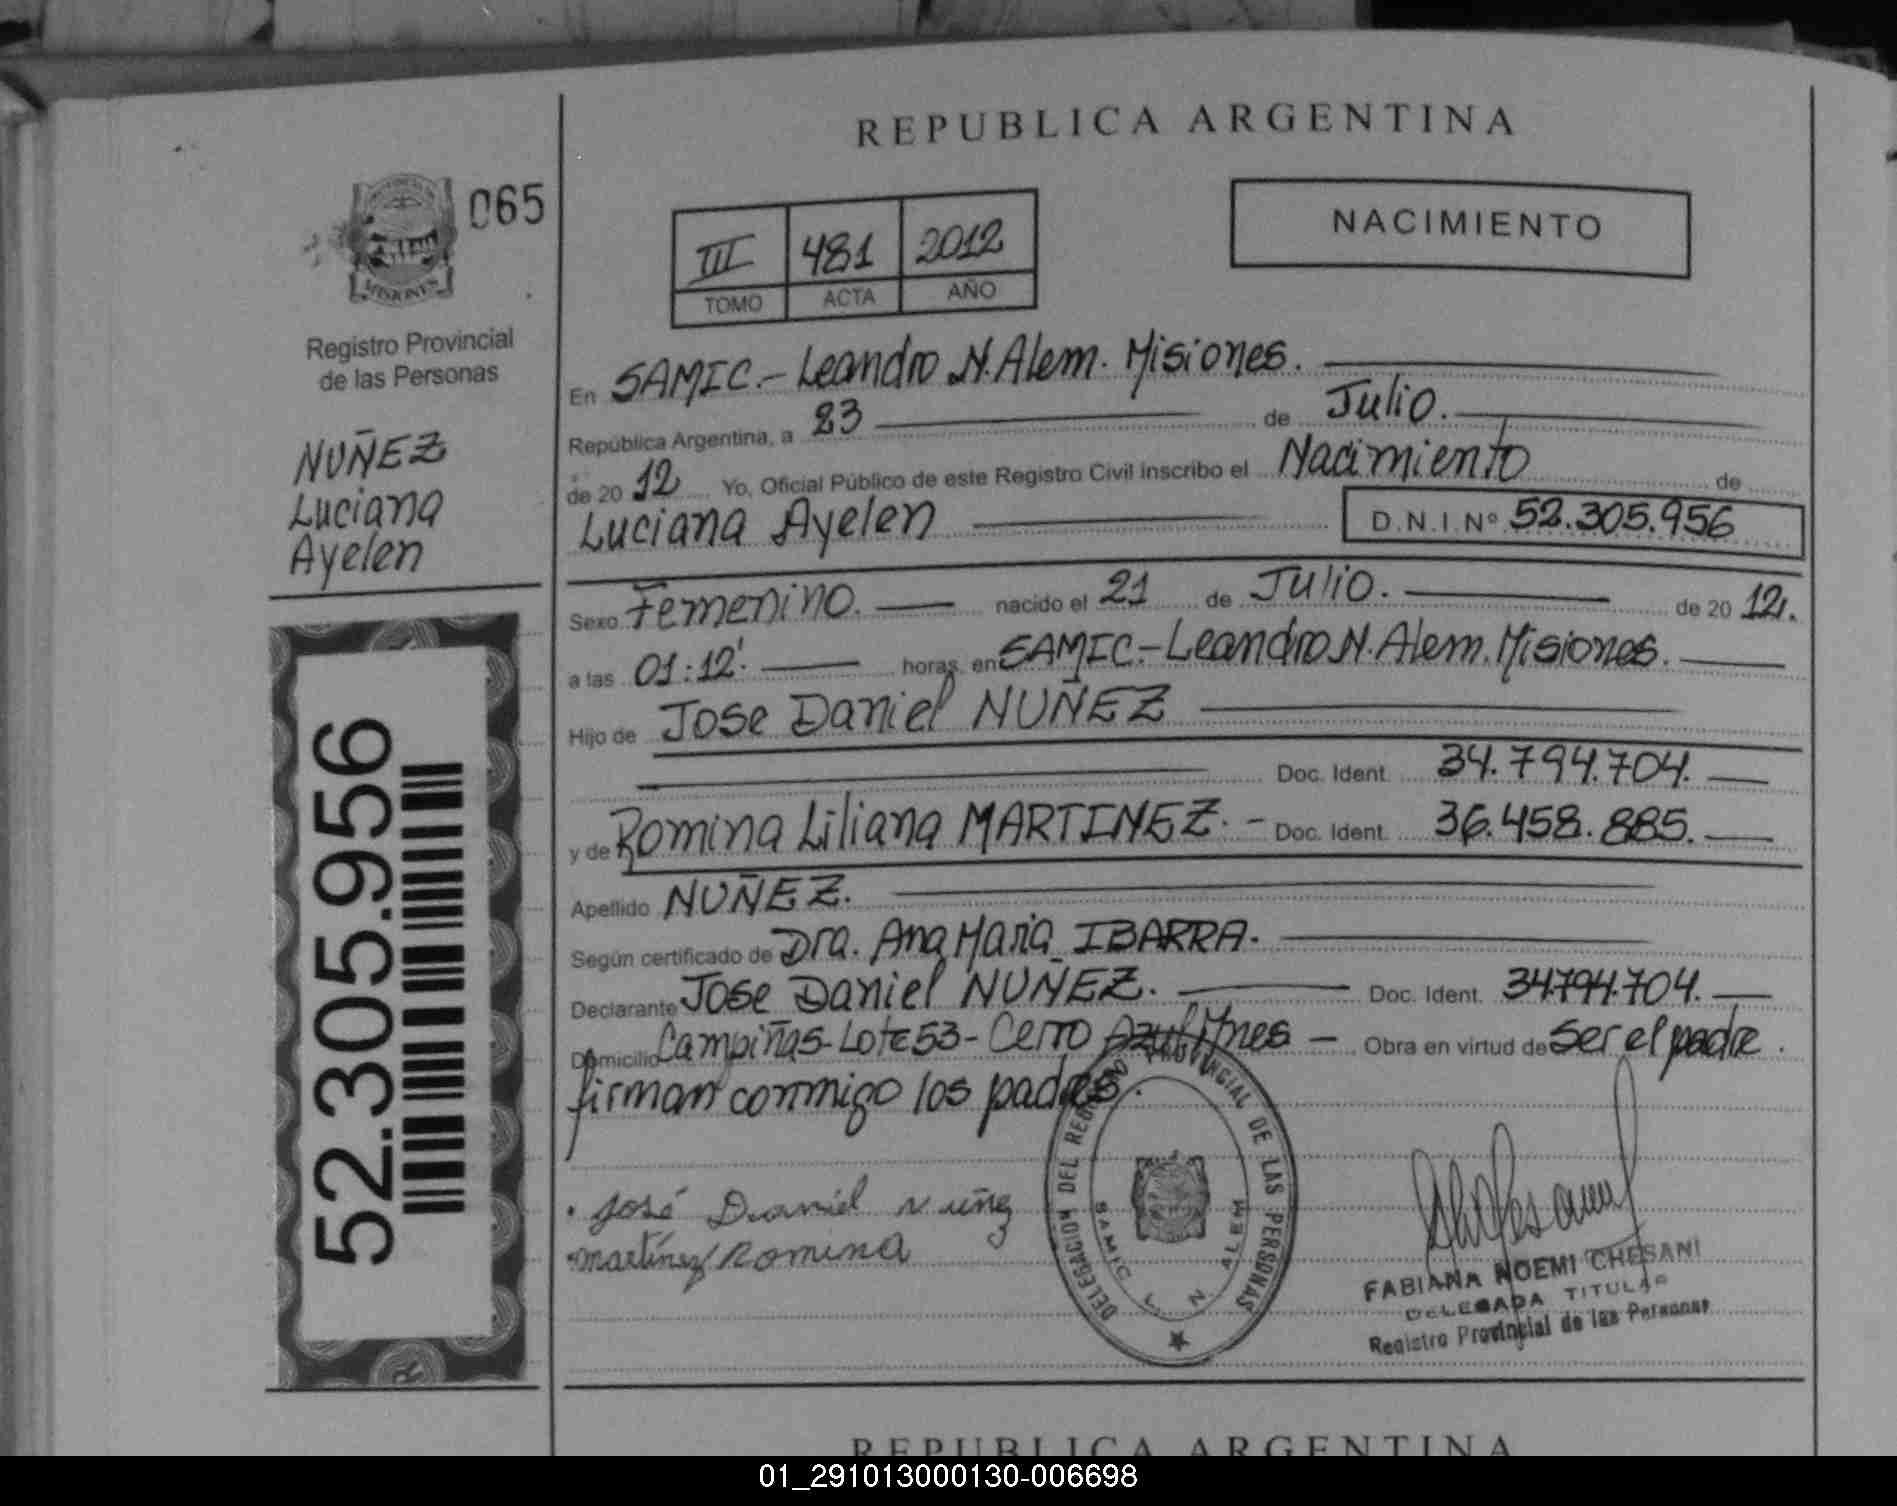 REPUBLICA ARGENTINA
065
NACIMIENTO
III 481 2012
TOMO ACTA AÑO
MISIONES
Registro Provincial
de las Personas
NUÑEZ
Luciana
Ayelen
En SAMIC.- Leandro N. Alem. Misiones.
República Argentina, a 23 de Julio.
de 20 12 Yo, Oficial Público de este Registro Civil inscribo el Nacimiento de
Luciana Ayelen D.N.I.Nº 52.305.956
Sexo Femenino. nacido el 21 de Julio. de 20 12.
a las 01:12'. horas, en SAMIC.- Leandro N. Alem. Misiones.
Hijo de Jose Daniel NUÑEZ
Doc. Ident. 34.794.704.
y de Romina Liliana MARTINEZ. - Doc. Ident. 36.458.885.
Apellido NUÑEZ.
Según certificado de Dra. Ana Maria IBARRA.
Declarante Jose Daniel NUÑEZ. Doc. Ident. 34794.704.
Domicilio Campiñas-Lote 53- Cerro Azul Mnes - Obra en virtud de Ser el padre.
firman conmigo los padres.
52.305.956
José Daniel Nuñez
martínez Romina
DELEGACION DEL REGISTRO PROVINCIAL DE LAS PERSONAS
SAMIC L. N. ALEM
FABIANA NOEMI CHESANI
DELEGADA TITULAR
Registro Provincial de las Personas
REPUBLICA ARGENTINA
01_291013000130-006698